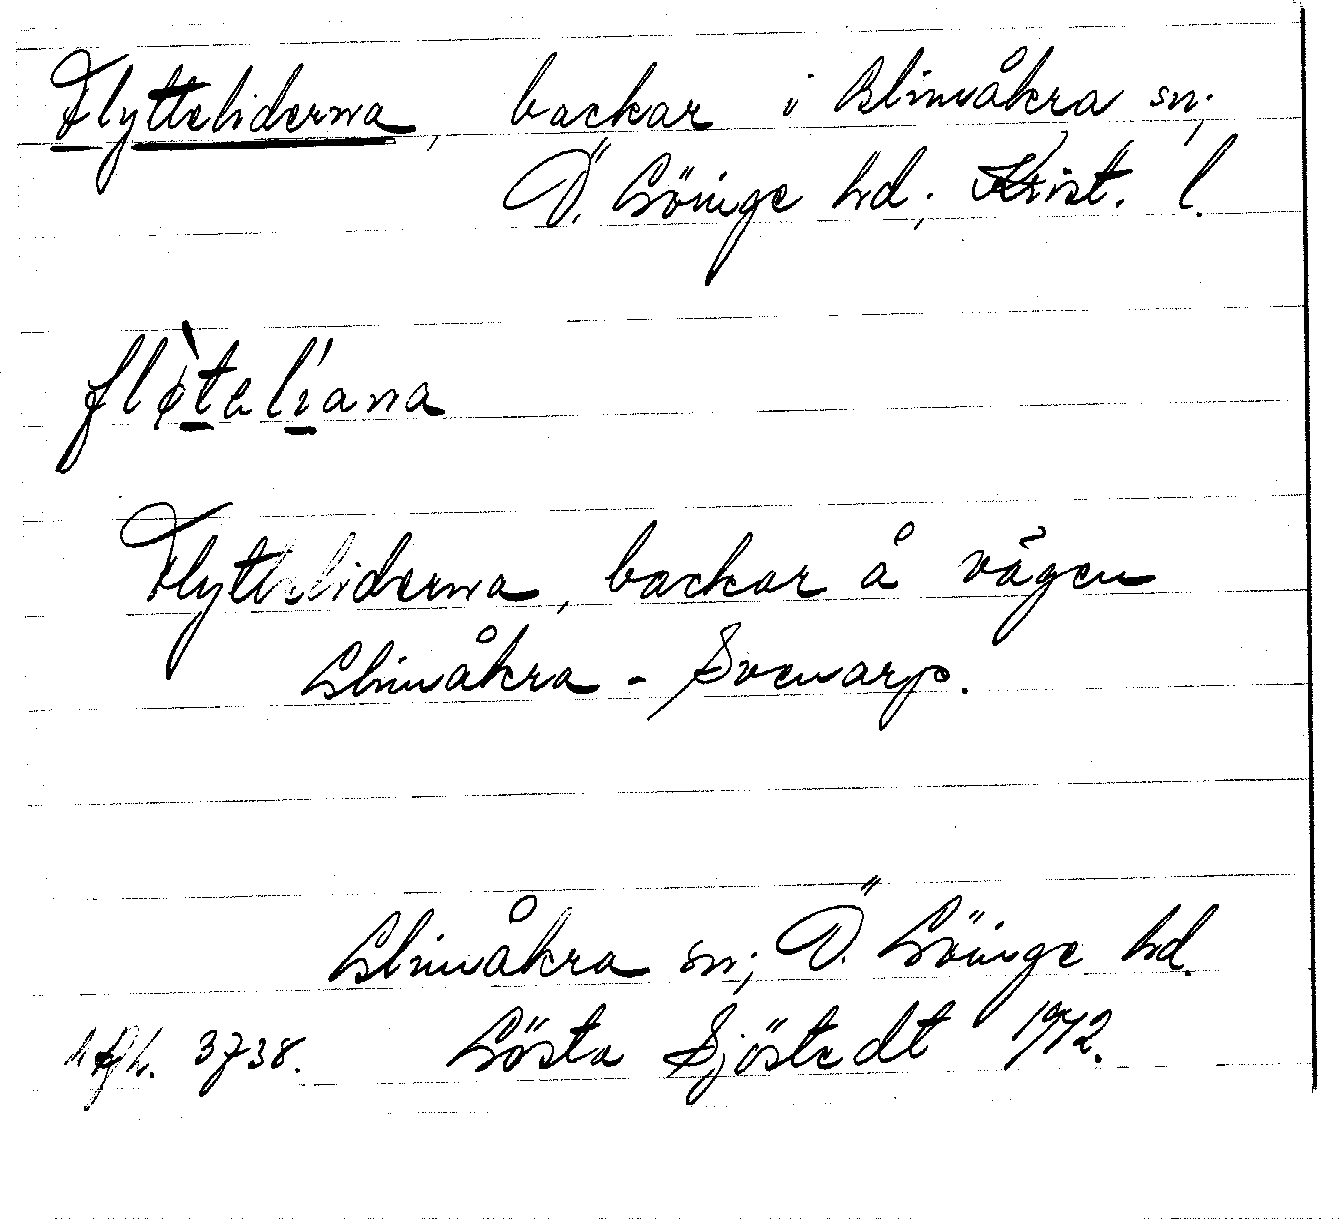 Flytteliderna, backar i Glimåkra sn;
Ö. Göinge hd; Krist. l.
fløteliana
Flytteliderna, backar å vägen
Glimåkra - Svenarp.
Glimåkra sn; Ö. Göinge hd.
3738. Gösta Sjöstedt 1942.